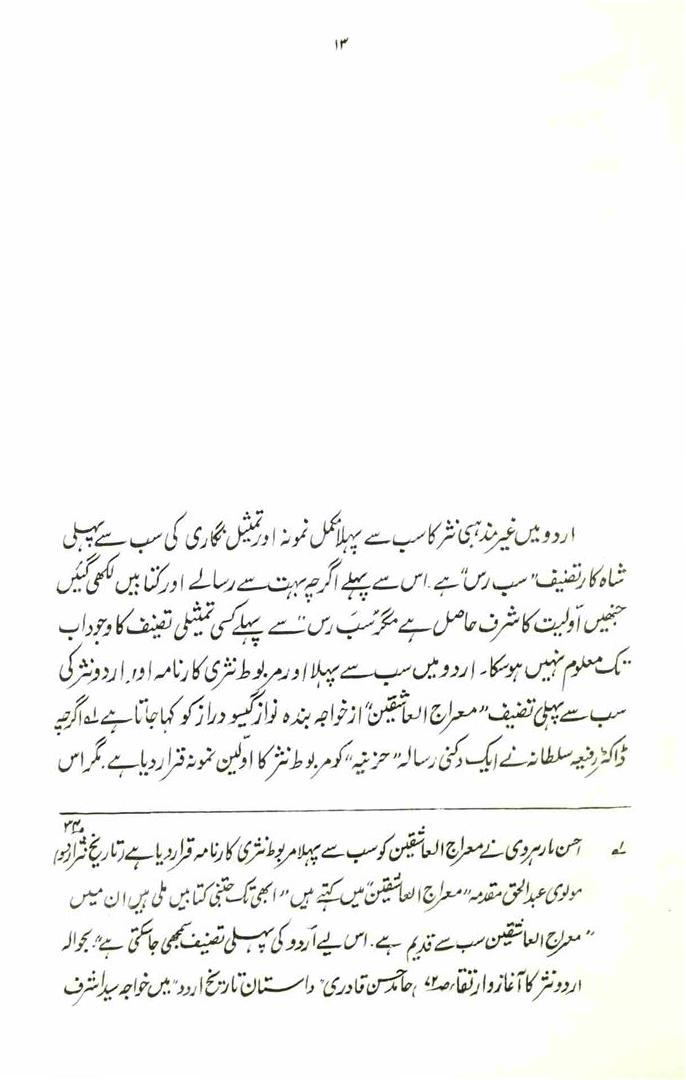 ۱۳
اردو میں غیر مذہبی نثر کا سب سے پہلا مکمل نمونہ اور تمثیل نگاری کی سب سے پہلی
شاہ کار تصنیف "سب رس" ہے۔ اس سے پہلے اگرچہ بہت سے رسالے اور کتابیں لکھی گئیں
جنھیں اوّلیت کا شرف حاصل ہے مگر "سب رس" سے پہلے کسی تمثیلی تصنیف کا وجود اب
تک معلوم نہیں ہوسکا۔ اردو میں سب سے پہلا اور مربوط نثری کارنامہ اور اردو نثر کی
سب سے پہلی تصنیف "معراج العاشقین" از خواجہ بندہ نواز گیسو دراز کو کہا جاتا ہے لہ اگرچہ
ڈاکٹر رفیعہ سلطانہ نے ایک دکنی رسالہ "حزینیہ" کو مربوط نثر کا اوّلین نمونہ قرار دیا ہے۔ مگر اس
لہ احسن مارہروی نے معراج العاشقین کو سب سے پہلا مربوط نثری کارنامہ قرار دیا ہے (تاریخ نثر اردو)
مولوی عبدالحق مقدمہ "معراج العاشقین" میں کہتے ہیں "ابھی تک جتنی کتابیں ملی ہیں ان میں
"معراج العاشقین سب سے قدیم ہے۔ اس لیے اردو کی پہلی تصنیف سمجھی جاسکتی ہے"۔ بحوالہ
اردو نثر کا آغاز و ارتقاء صہ ۷۲، حامد حسن قادری "داستان تاریخ اردو" میں خواجہ سید اشرف